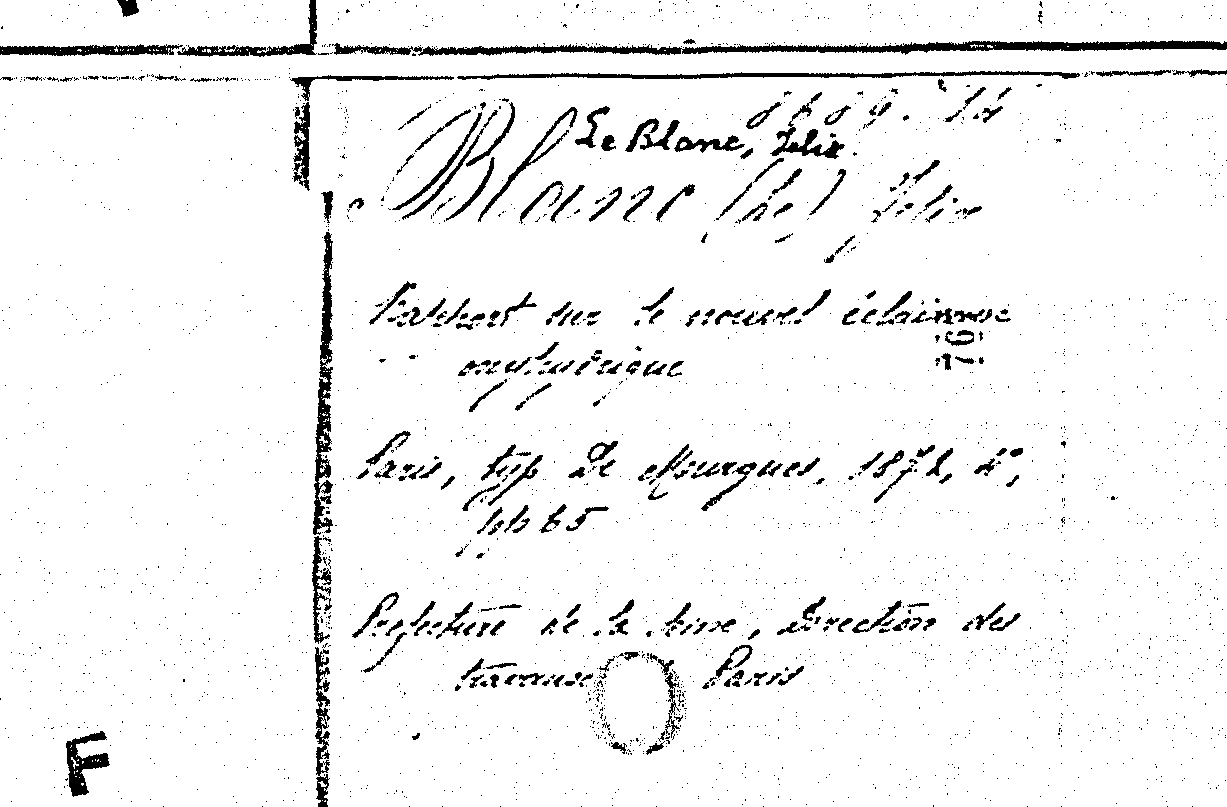 8689. 14
Le Blanc, Felix.
Blanc (Le) Felix
Rapport sur le nouvel éclairage
oxyhydrique
76
Paris, typ De Mourgues, 1872, 4°,
pp 65
Prefecture de la Seine, Direction des
travaux Paris
F